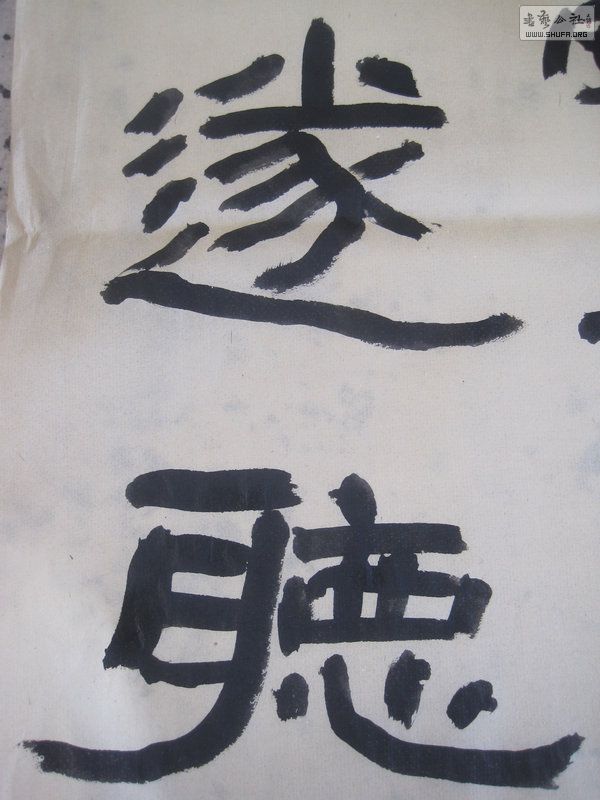 書藝公社
WWW.SHUFA.ORG
遂
聽